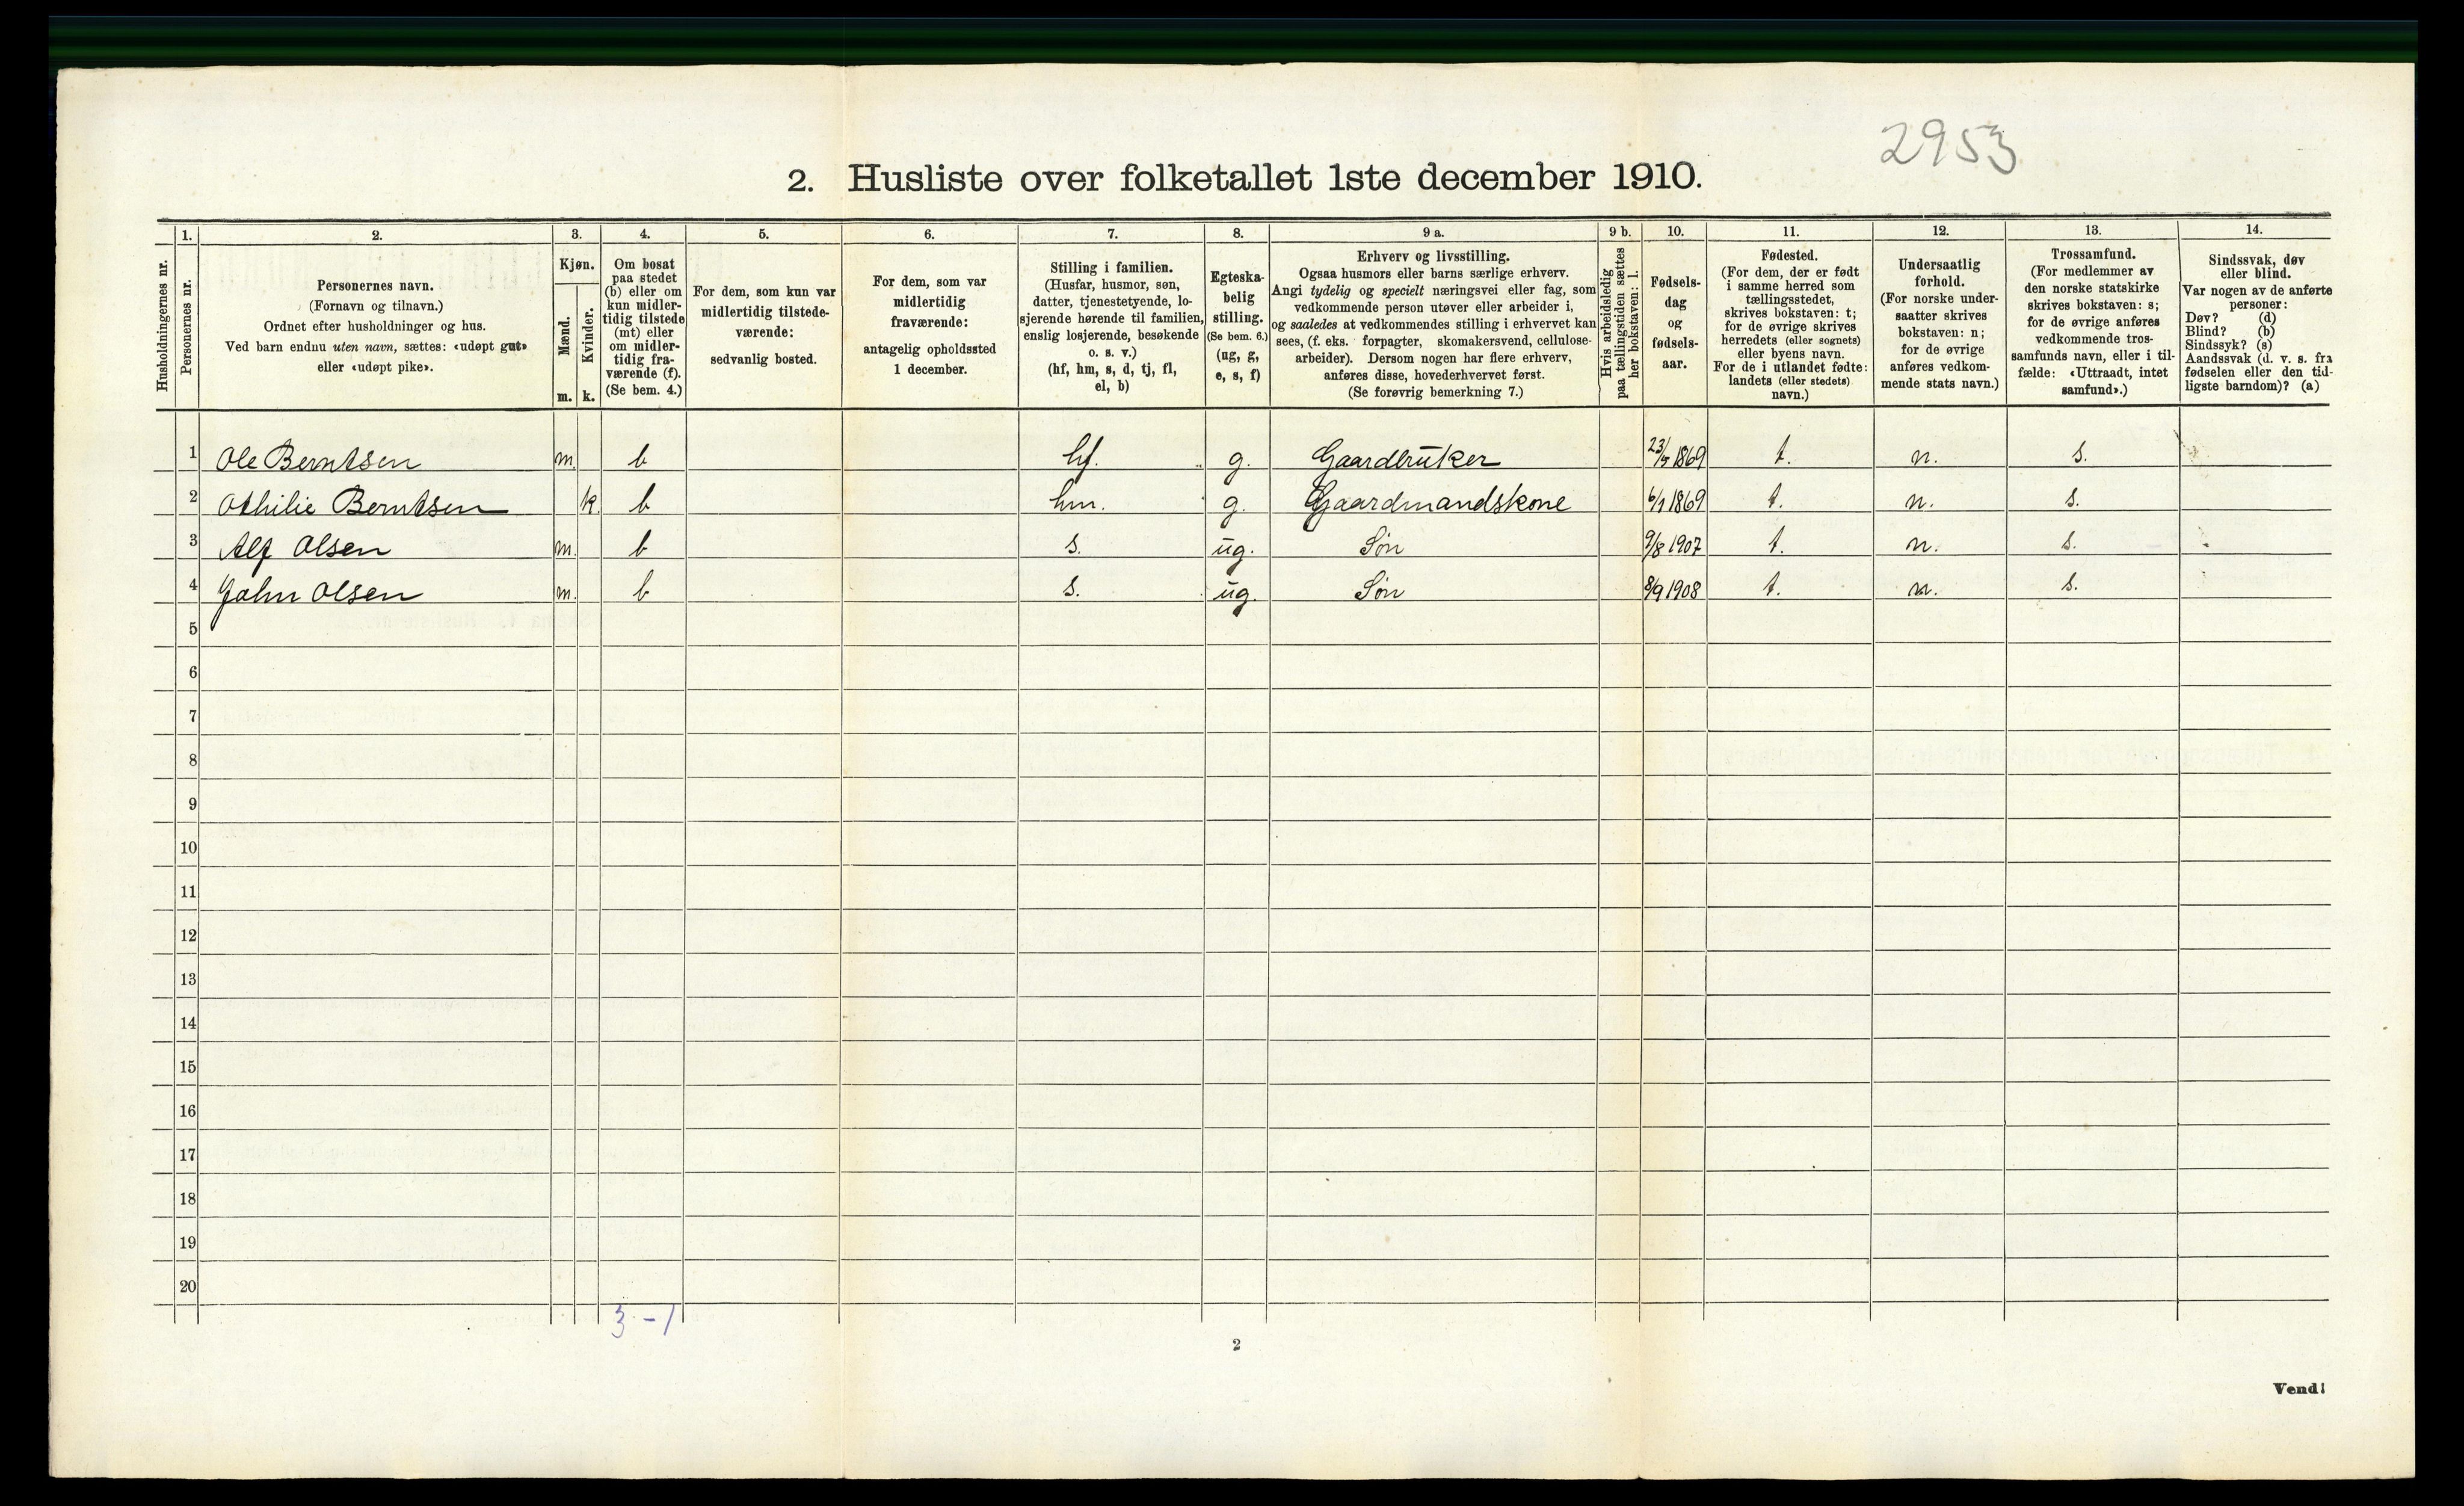 2953
2. Husliste over folketallet 1ste december 1910.
Husholdningernes nr.
1.
Personernes nr.
2.
Personernes navn.
(Fornavn og tilnavn.)
Ordnet efter husholdninger og hus.
Ved barn endnu uten navn, sættes: «udøpt gut»
eller «udøpt pike».
3.
Kjøn.
Mænd.
m.
Kvinder.
k.
4.
Om bosat
paa stedet
(b) eller om
kun midler-
tidig tilstede
(mt) eller
om midler-
tidig fra-
værende (f).
(Se bem. 4.)
5.
For dem, som kun var
midlertidig tilstede-
værende:
sedvanlig bosted.
6.
For dem, som var
midlertidig
fraværende:
antagelig opholdssted
1 december.
7.
Stilling i familien.
(Husfar, husmor, søn,
datter, tjenestetyende, lo-
sjerende hørende til familien,
enslig losjerende, besøkende
o. s. v.)
(hf, hm, s, d, tj, fl,
el, b)
8.
Egteska-
belig
stilling.
(Se bem. 6.)
(ug, g,
e, s, f)
9 a.
Erhverv og livsstilling.
Ogsaa husmors eller barns særlige erhverv.
Angi tydelig og specielt næringsvei eller fag, som
vedkommende person utøver eller arbeider i,
og saaledes at vedkommendes stilling i erhvervet kan
sees, (f. eks. forpagter, skomakersvend, cellulose-
arbeider). Dersom nogen har flere erhverv,
anføres disse, hovederhvervet først.
(Se forøvrig bemerkning 7.)
9 b.
Hvis arbeidsledig
paa tællingstiden sættes
her bokstaven: l.
10.
Fødsels-
dag
og
fødsels-
aar.
11.
Fødested.
(For dem, der er født
i samme herred som
tællingsstedet,
skrives bokstaven: t;
for de øvrige skrives
herredets (eller sognets)
eller byens navn.
For de i utlandet fødte:
landets (eller stedets)
navn.)
12.
Undersaatlig
forhold.
(For norske under-
saatter skrives
bokstaven: n;
for de øvrige
anføres vedkom-
mende stats navn.)
13.
Trossamfund.
(For medlemmer av
den norske statskirke
skrives bokstaven: s;
for de øvrige anføres
vedkommende tros-
samfunds navn, eller i til-
fælde: «Uttraadt, intet
samfund».)
14.
Sindssvak, døv
eller blind.
Var nogen av de anførte
personer:
Døv? (d)
Blind? (b)
Sindssyk? (s)
Aandssvak (d. v. s. fra
fødselen eller den tid-
ligste barndom)? (a)
1 Ole Berntsen m. b hf. g. Gaardbruker 23/5 1869 t. n. s.
2 Othilie Berntsen k. b hm. g. Gaardmandskone 6/1 1869 t. n. s.
3 Alf Olsen m. b s. ug. Søn 9/8 1907 t. n. s.
4 John Olsen m. b s. ug. Søn 8/9 1908 t. n. s.
5
6
7
8
9
10
11
12
13
14
15
16
17
18
19
20
3 - 1
2
Vend!